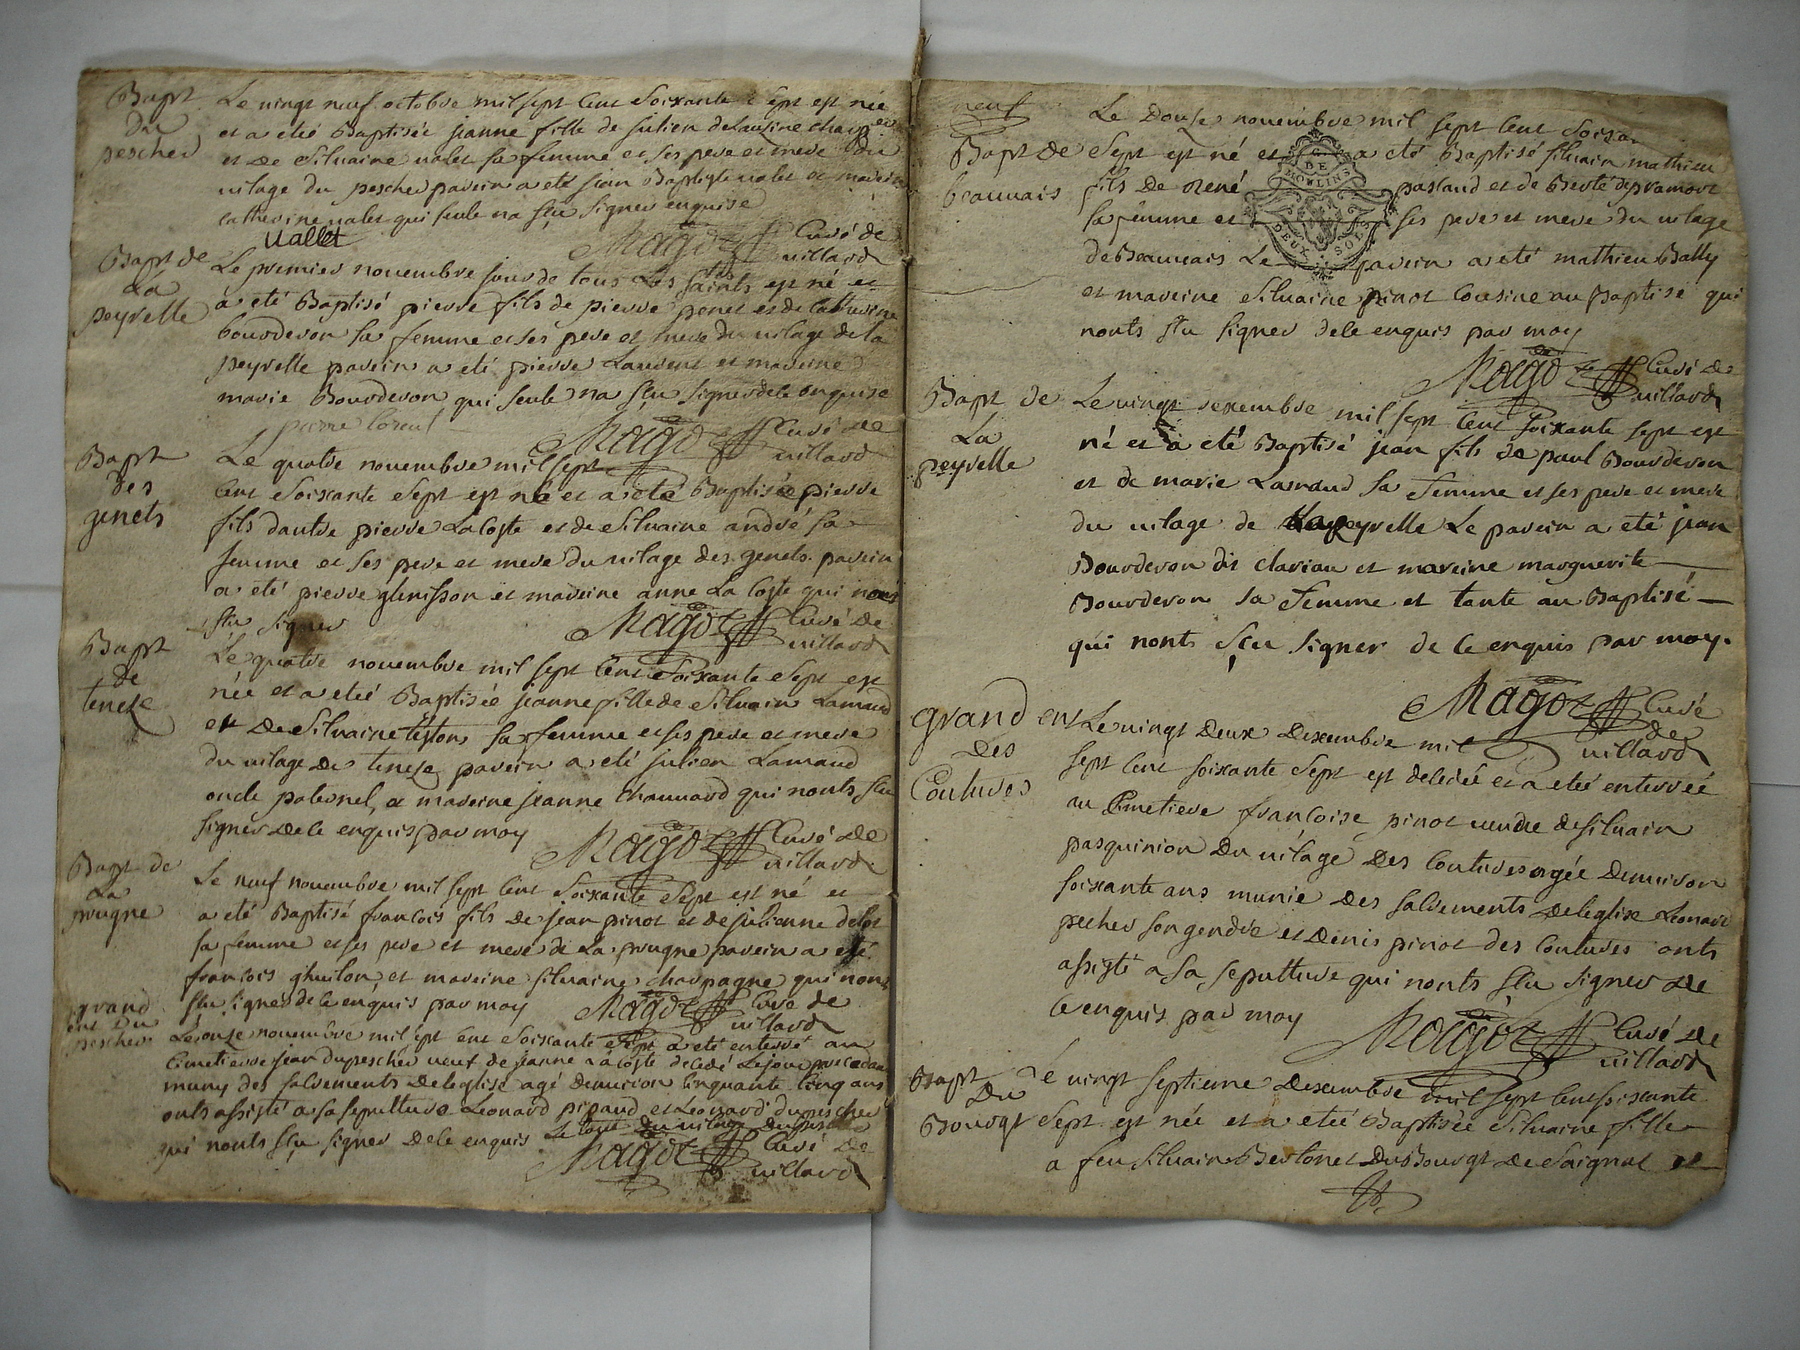 Bapt
du
pescher
Le vingt neuf octobre mil sept cent soixante e sept est née
et a eteé Baptisée jeanne fille de julien delausine
et de Siluaine ualet sa femme et ses pere et mere du
uilage du pescher parein a eté jean Baptiste ualet et mareine
catherine ualet qui seule na sçu signer enquise
Uallet
Magot Curé de
uillard
Bapt de
La
peyrelle
Le premier nouembre jour de tous Les saints est né et
a eté Baptisé pierre fils de pierre penet et de Catherine
bourderon sa femme et ses pere et mere du uilage de la
peyrelle parein a eté pierre Laurent et mareine
marie Bourderon qui seule na sçu signer de le enquise
pierre
Magot Curé de
uillard
Bapt
des
genets
Le quatre nouembre mil sept
cent soixante sept est né et a eté Baptisée pierre
fils dautre pierre La Coste et de Siluaine andré sa
femme et ses pere et mere du uilage des genets parein
a eté pierre glenisson et mareine anne La Coste qui nonts
sçu signer
Magot Curé de
uillard
Bapt
de
teneze
Le quatre nouembre mil sept cent Soixante Sept est
née et a eteé Baptisée jeanne fille de Siluain Lamaud
et De Siluaine teston sa femme et ses pere et mere
du uilage de teneze parein a eté julien Lamaud
oncle paternel, et mareine jeanne Chaumard qui nonts sçu
signer de le enquis par moy
Magot Curé de
uillard
Bapt de
La
prugne
Le neuf nouembre mil sept cent soixante sept est né et
a eté Baptisé francois fils de jean pinot et de julienne
sa femme et ses pere et mere de La prugne parein a eté
francois ghuilon, et mareine siluaine charpagne qui nonts
sçu signer de le enquis par moy
Magot Curé de
uillard
grand
ent Du
pescher
Le onze nouembre mil sept cent soixante sept a eté enterré au
Cimetierre jean dupescher ueuf de jeanne La Coste decedé Le jour precedent
muny des sacrements de leglise agé denuiron cinquante cinq ans
onts assisté a sa sepulture Leonard pipaud et Leonard dupescher
Le tout du uilage du pescher
qui nonts sçu signer de le enquis
Magot Curé de
uillard
neuf
Bapt de
beauuais
Le Douse nouembre mil sept cent soixan
sept est né et a eté Baptisé siluain mathieu
fils de rené pasland et de
sa femme et ses pere et mere du uilage
de Beauuais Le parein a eté mathieu Bally
et mareine Siluaine pinot Cousine au Baptisé qui
nonts sçu signer de le enquis par moy
G. DE MOULINS
DEUX SOLS
Magot Curé de
uillard
Bapt de
La
peyrelle
Le vingt dexembre mil sept cent soixante sept est
né et a été Baptisé jean fils de paul Bourderon
et de marie Lamaud sa femme et ses pere et mere
du uilage de Lapeyrelle Le parein a eté jean
Bourderon dit clariau et mareine marguerite
Bourderon sa femme et tante au Baptisé
qui nonts sçu signer de le enquis par moy.
Magot Curé
de
uillard
grand ent
des
Coutures
Le vingt Deux Dexembre mil
sept cent soixante sept est decedée et a eteé enterrée
au Cimetiere francoise pinot ueuue de siluain
pasquinion Du uilage des Coutures agée denuiron
soixante ans munie des sacrements de leglise Leonard
pecher son gendre et Denis pinot des Coutures onts
assisté a sa sepulture qui nonts sçu signer de
le enquis par moy
Magot Curé de
uillard
Bapt
Du
Bourgt
Le vingt septieme Dexembre mil sept cent soixante
sept est née et a eteé Baptisée Siluaine fille
a feu siluain Bertonet Du Bourgt de Saignat et